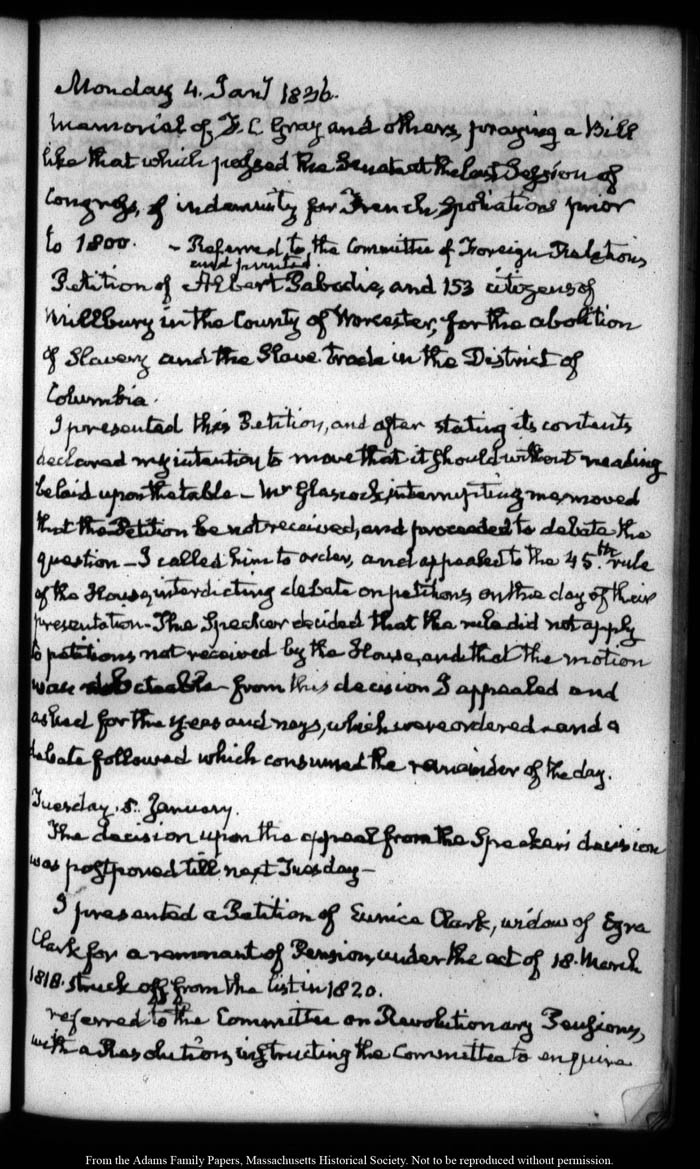 Monday 4. Jany 1836.
Memorial of F. C. Gray and others, praying a Bill
like that which passed the Senate at the last Session of
Congress, of indemnity for French Spoliations prior
to 1800. - Referred to the Committee of Foreign Relations
and printed.
Petition of Albert Pabadie, and 153 citizens of
Millbury in the County of Worcester, for the abolition
of Slavery and the Slave trade in the District of
Columbia.
I presented this Petition, and after stating its contents
declared my intention to move that it should without reading
be laid upon the table - Mr Glascock, interrupting me, moved
that the Petition be not received, and proceeded to debate the
question - I called him to order, and appealed to the 45.th rule
of the House, interdicting debate on petitions, on the day of their
presentation - The Speaker decided that the rule did not apply
to petitions not received by the House, and that the motion
was debateable - from this decision I appealed and
asked for the yeas and nays, which were ordered - and a
debate followed which consumed the remainder of the day.
Tuesday. 5. January.
The decision upon the appeal from the Speaker's decision
was postponed till next Tuesday -
I presented a Petition of Eunice Clark, widow of Ezra
Clark for a remnant of Pension, under the act of 18. March
1818. struck off from the list in 1820.
referred to the Committee on Revolutionary Pensions,
with a Resolution, instructing the Committee to enquire
From the Adams Family Papers, Massachusetts Historical Society. Not to be reproduced without permission.